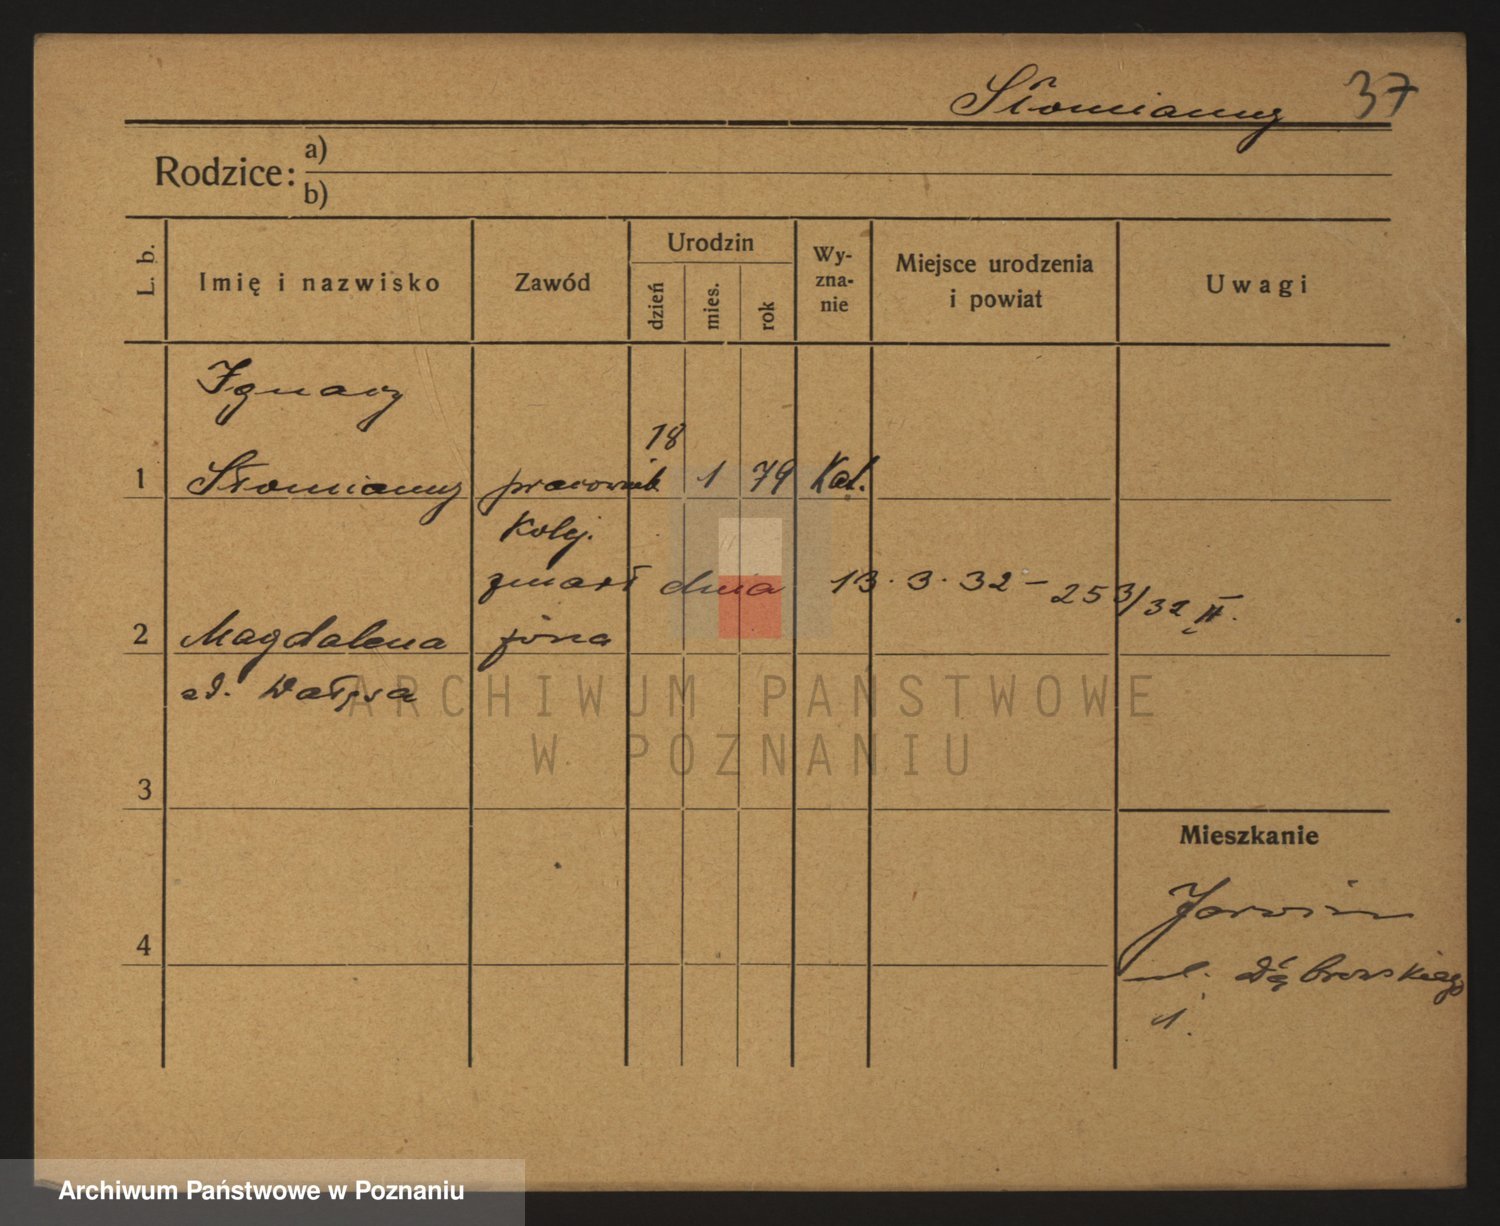 Słomianny 37
Rodzice: a)
b)
L. b. Imię i nazwisko Zawód Urodzin dzień mies. rok Wy-zna-nie Miejsce urodzenia i powiat Uwagi
Ignacy
18
1 Słomianny pracownik 1 79 Kat.
Kolej.
zmarł dnia 13. 3. 32 - 253/32 II.
2 Magdalena żona
ARCHIWUM PAŃSTWOWE
W POZNANIU
3
Mieszkanie
4
ul. Dąbrowskiego
1.
Archiwum Państwowe w Poznaniu